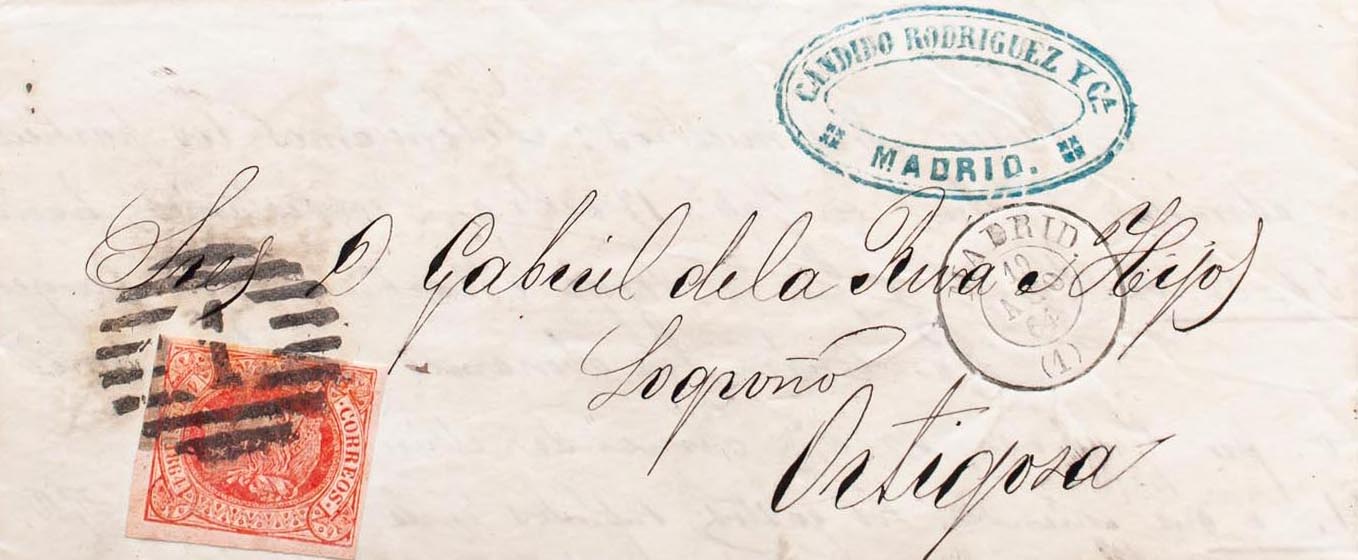 CANDIDO RODRIGUEZ Y Cª
MADRID.
MADRID.
12
64
(1)
Sres D Gabriel de la Riva e Hijos
Logroño
Ortigosa
CORREOS.
1864